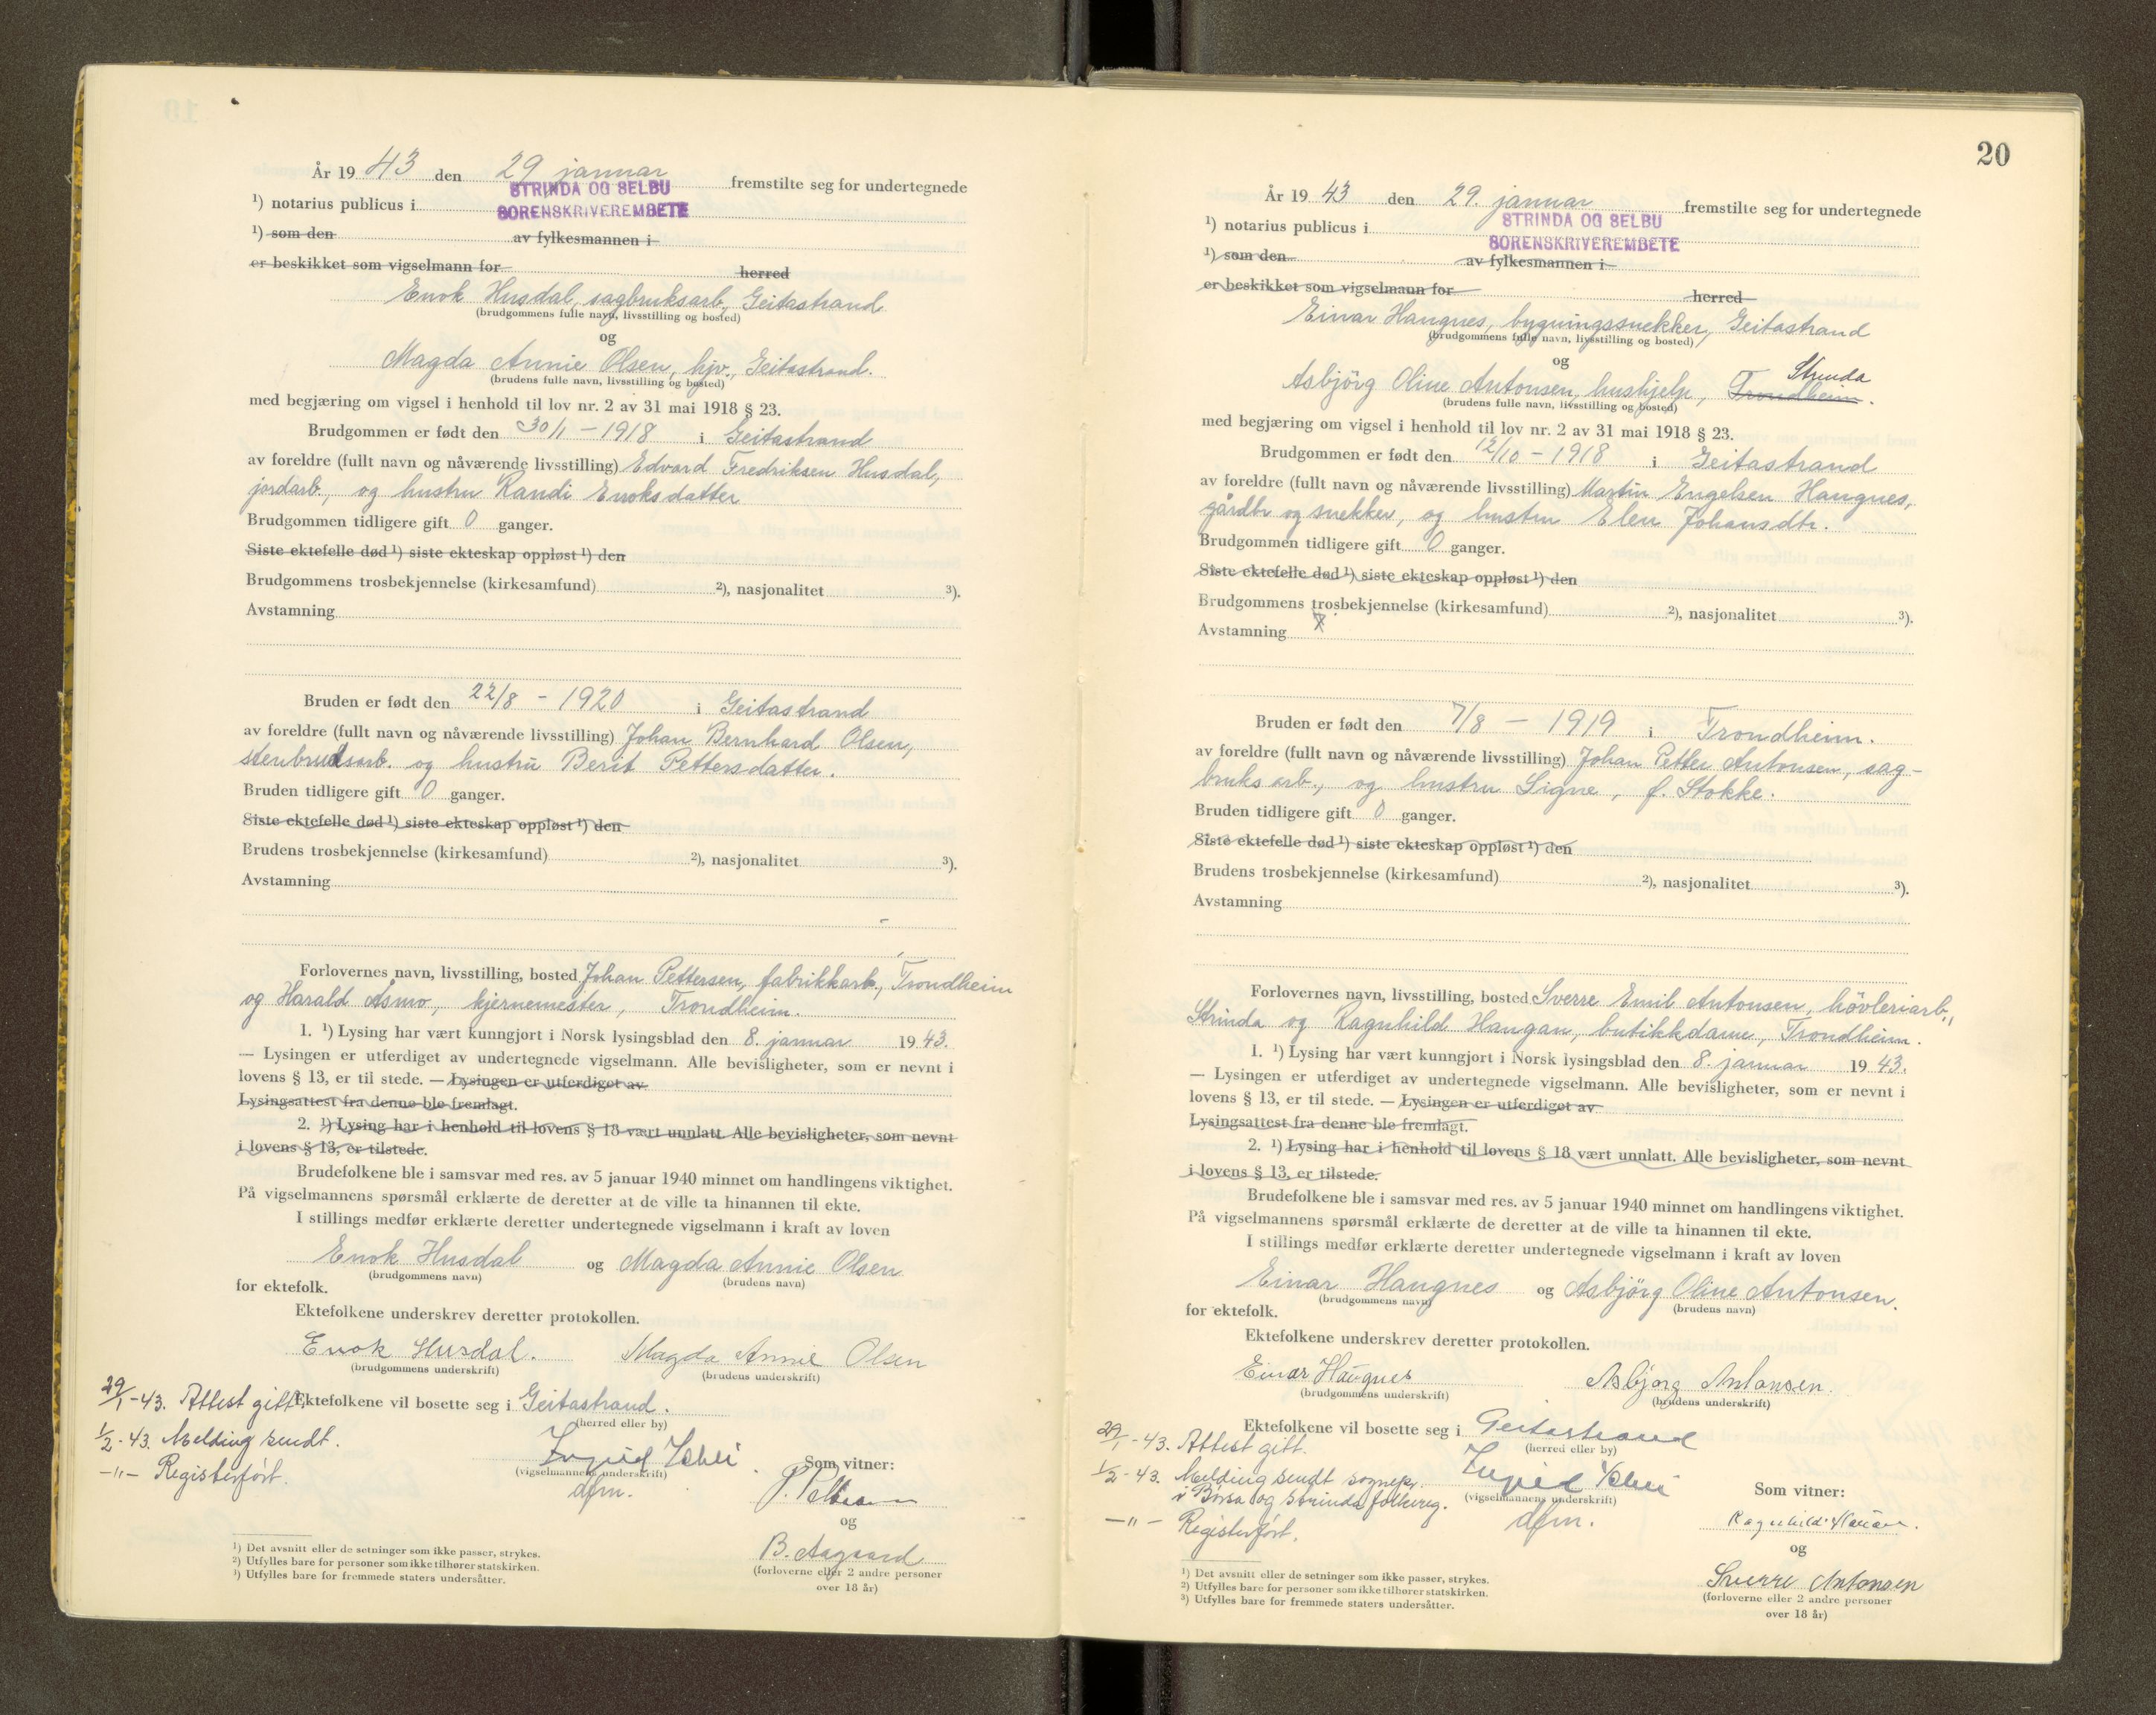 År 1943 den 29 januar fremstilte seg for undertegnede
¹) notarius publicus i STRINDA OG SELBU
SORENSKRIVEREMBETE
¹) som den av fylkesmannen i
er beskikket som vigselmann for herred
Enok Husdal, sagbruksarb., Geitastrand
(brudgommens fulle navn, livsstilling og bosted)
og
Magda Annie Olsen, hjv., Geitastrand.
(brudens fulle navn, livsstilling og bosted)
med begjæring om vigsel i henhold til lov nr. 2 av 31 mai 1918 § 23.
Brudgommen er født den 30/1 - 1918 i Geitastrand
av foreldre (fullt navn og nåværende livsstilling) Edvard Fredriksen Husdal,
jordarb., og hustru Randi Enoksdatter
Brudgommen tidligere gift 0 ganger.
Siste ektefelle død ¹) siste ekteskap oppløst ¹) den
Brudgommens trosbekjennelse (kirkesamfund) ²), nasjonalitet ³).
Avstamning
Bruden er født den 22/8 - 1920 i Geitastrand
av foreldre (fullt navn og nåværende livsstilling) Johan Bernhard Olsen,
stenbruddsarb. og hustru Berit Pettersdatter.
Bruden tidligere gift 0 ganger.
Siste ektefelle død ¹) siste ekteskap oppløst ¹) den
Brudens trosbekjennelse (kirkesamfund) ²), nasjonalitet ³).
Avstamning
Forlovernes navn, livsstilling, bosted Johan Pettersen, fabrikkarb., Trondheim
og Harald Åsmo, kjernemester, Trondheim.
1. ¹) Lysing har vært kunngjort i Norsk lysingsblad den 8. januar 1943.
— Lysingen er utferdiget av undertegnede vigselmann. Alle bevisligheter, som er nevnt i
lovens § 13, er til stede. — Lysingen er utferdiget av
Lysingsattest fra denne ble fremlagt.
2. ¹) Lysing har i henhold til lovens § 18 vært unnlatt Alle bevisligheter, som nevnt
i lovens § 13, er tilstede.
Brudefolkene ble i samsvar med res. av 5 januar 1940 minnet om handlingens viktighet.
På vigselmannens spørsmål erklærte de deretter at de ville ta hinannen til ekte.
I stillings medfør erklærte deretter undertegnede vigselmann i kraft av loven
Enok Husdal og Magda Annie Olsen
(brudgommens navn) (brudens navn)
for ektefolk.
Ektefolkene underskrev deretter protokollen.
Enok Husdal. Magda Annie Olsen
(brudgommens underskrift) (brudens underskrift)
29/1-43. Attest gitt. Ektefolkene vil bosette seg i Geitastrand.
(herred eller by)
1/2-43. Melding sendt.
-"- Registerført.
Ingrid
(vigselmannens underskrift) Som vitner:
dfm. 
og
B. Aagaard
(forloverne eller 2 andre personer
over 18 år)
¹) Det avsnitt eller de setninger som ikke passer, strykes.
²) Utfylles bare for personer som ikke tilhører statskirken.
³) Utfylles bare for fremmede staters undersåtter.
20
År 1943 den 29. januar fremstilte seg for undertegnede
¹) notarius publicus i STRINDA OG SELBU
SORENSKRIVEREMBETE
¹) som den av fylkesmannen i
er beskikket som vigselmann for herred
Einar Haugnes, bygningssnekker, Geitastrand
(brudgommens fulle navn, livsstilling og bosted)
og
Strinda
Asbjörg Oline Antonsen, hushjelp, Trondheim.
(brudens fulle navn, livsstilling og bosted)
med begjæring om vigsel i henhold til lov nr. 2 av 31 mai 1918 § 23.
Brudgommen er født den 12/10 - 1918 i Geitastrand
av foreldre (fullt navn og nåværende livsstilling) Martin Engelsen Haugnes,
gårdbr og snekker, og hustru Elen Johansdtr.
Brudgommen tidligere gift 0 ganger.
Siste ektefelle død ¹) siste ekteskap oppløst ¹) den
Brudgommens trosbekjennelse (kirkesamfund) ²), nasjonalitet ³).
Avstamning
Bruden er født den 7/8 - 1919 i Trondheim.
av foreldre (fullt navn og nåværende livsstilling) Johan Petter Antonsen, sag-
bruksarb., og hustru Signe, f. Stokke.
Bruden tidligere gift 0 ganger.
Siste ektefelle død ¹) siste ekteskap oppløst ¹) den
Brudens trosbekjennelse (kirkesamfund) ²), nasjonalitet ³).
Avstamning
Forlovernes navn, livsstilling, bosted Sverre Emil Antonsen, hövleriarb.,
Strinda og Ragnhild Haugan, butikkdame, Trondheim.
1. ¹) Lysing har vært kunngjort i Norsk lysingsblad den 8. januar 1943.
— Lysingen er utferdiget av undertegnede vigselmann. Alle bevisligheter, som er nevnt i
lovens § 13, er til stede. — Lysingen er utferdiget av
Lysingsattest fra denne ble fremlagt.
2. ¹) Lysing har i henhold til lovens § 18 vært unnlatt. Alle bevisligheter, som nevnt
i lovens § 13, er tilstede.
Brudefolkene ble i samsvar med res. av 5 januar 1940 minnet om handlingens viktighet.
På vigselmannens spørsmål erklærte de deretter at de ville ta hinannen til ekte.
I stillings medfør erklærte deretter undertegnede vigselmann i kraft av loven
Einar Haugnes og Asbjörg Oline Antonsen.
(brudgommens navn) (brudens navn)
for ektefolk.
Ektefolkene underskrev deretter protokollen.
Einar Haugnes Asbjørg Antonsen.
(brudgommens underskrift) (brudens underskrift)
Ektefolkene vil bosette seg i Geitastrand
(herred eller by)
29/1-43. Attest gitt.
1/2-43. Melding sendt sognepr.
i Börsa og Strinda folkereg.
-"- Registerført.
Ingrid
(vigselmannens underskrift) Som vitner:
dfm. Ragnhild Haugan.
og
Sverre Antonsen
(forloverne eller 2 andre personer
over 18 år)
¹) Det avsnitt eller de setninger som ikke passer, strykes.
²) Utfylles bare for personer som ikke tilhører statskirken.
³) Utfylles bare for fremmede staters undersåtter.